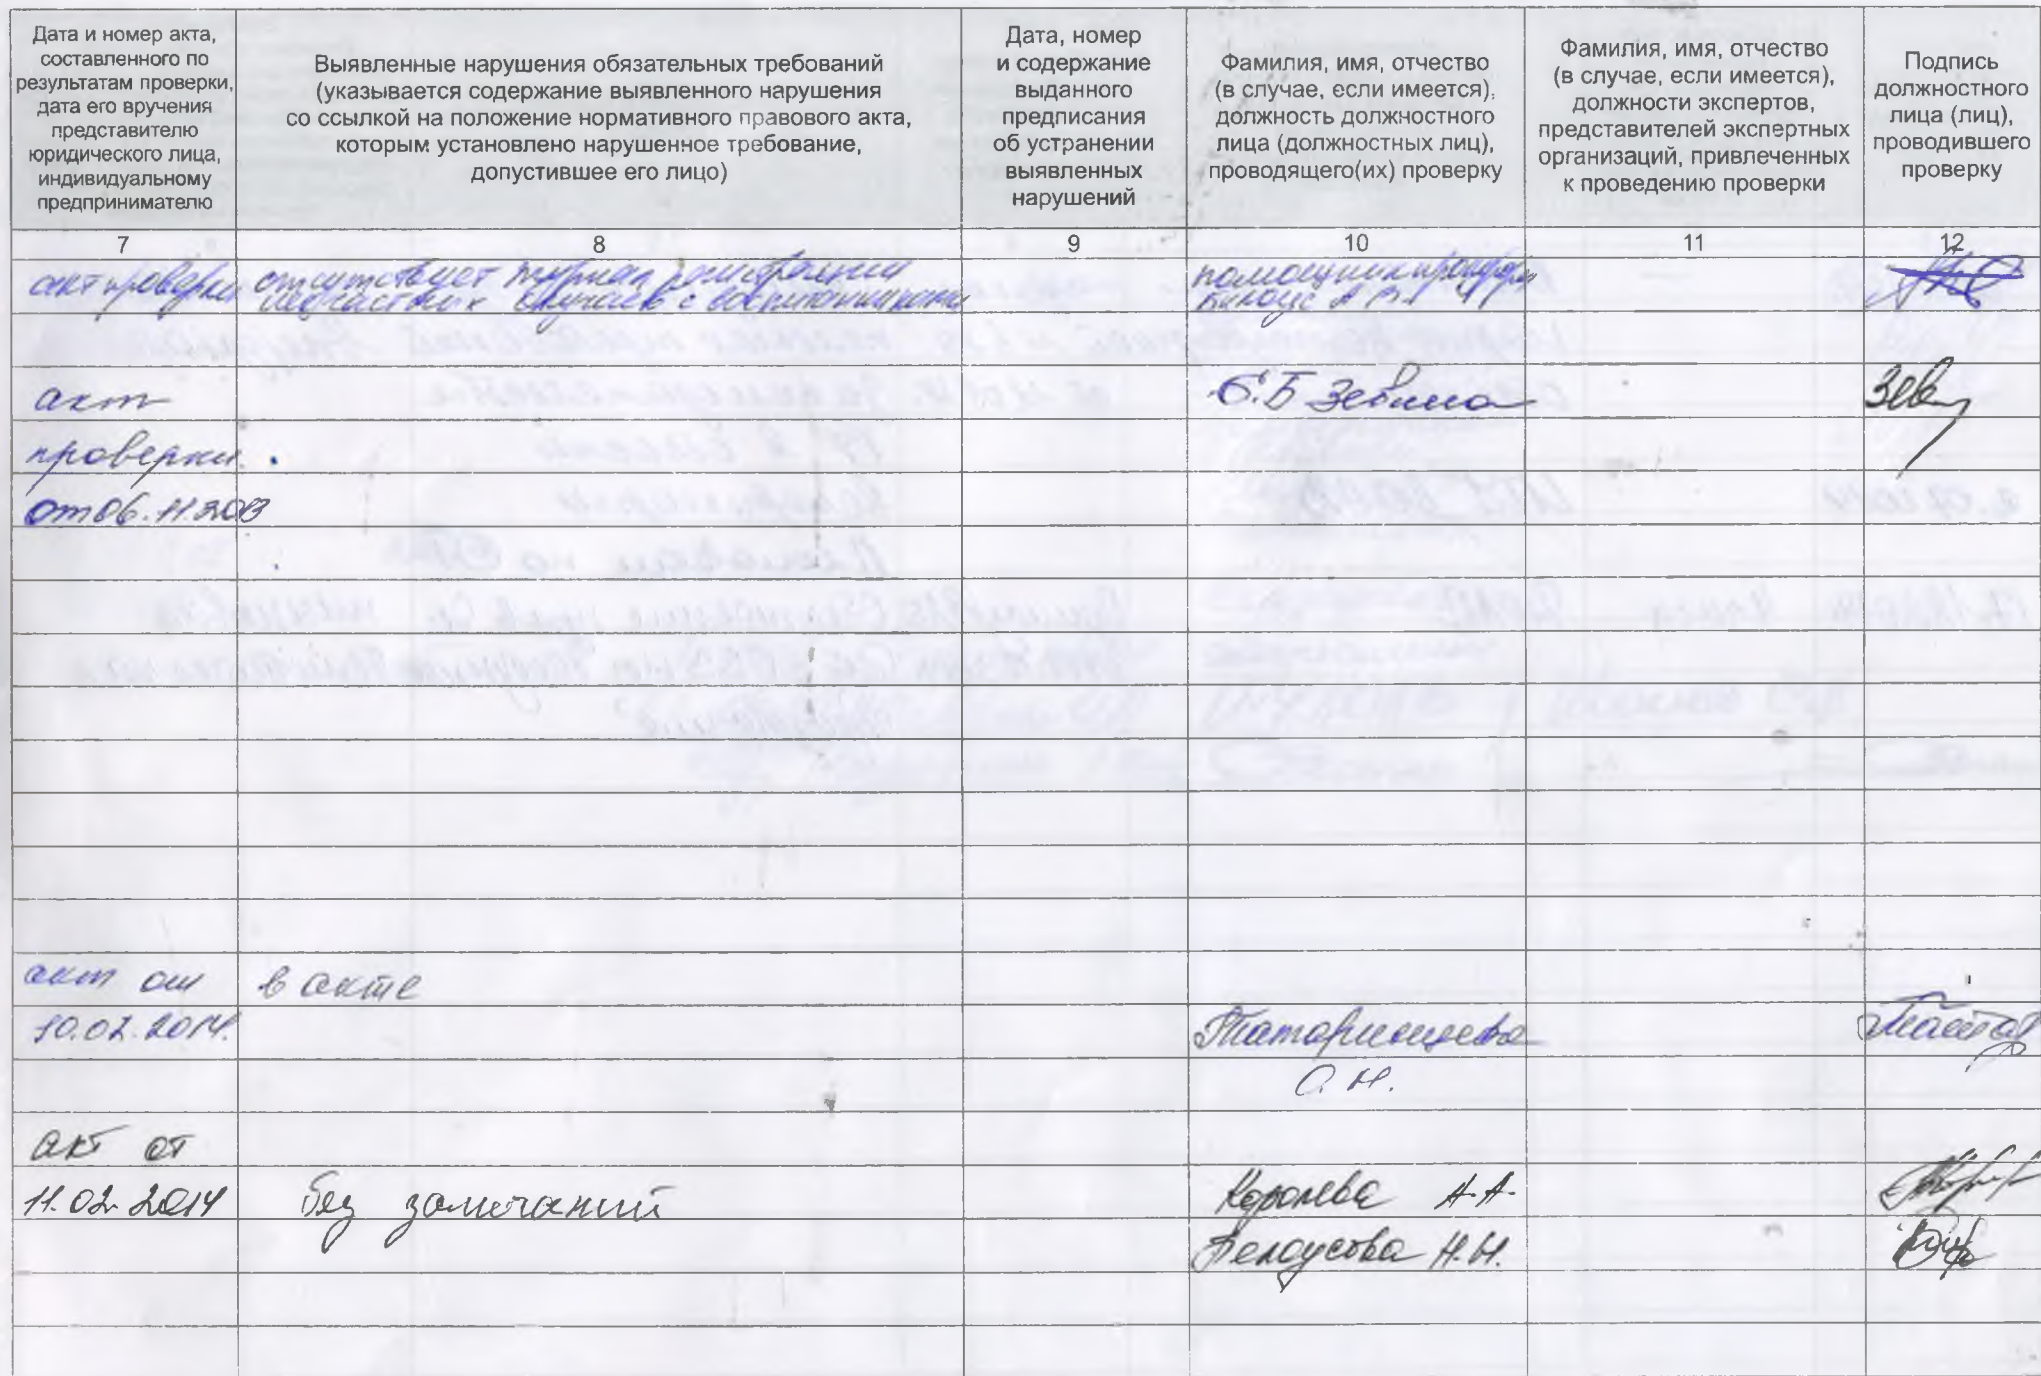 Дата и номер акта,
составленного по
результатам проверки,
дата его вручения
представителю
юридического лица,
индивидуальному
предпринимателю
Выявленные нарушения обязательных требований
(указывается содержание выявленного нарушения
со ссылкой на положение нормативного правового акта,
которым установлено нарушенное требование,
допустившее его лицо)
Дата, номер
и содержание
выданного
предписания
об устранении
выявленных
нарушений
Фамилия, имя, отчество
(в случае, если имеется),
должность должностного
лица (должностных лиц),
проводящего(их) проверку
Фамилия, имя, отчество
(в случае, если имеется),
должности экспертов,
представителей экспертных
организаций, привлеченных
к проведению проверки
Подпись
должностного
лица (лиц),
проводившего
проверку
7 8 9 10 11 12
акт проверки отсутствует журнал регистрации помощник
несчастных случаев с воспитанниками Белоус А В
акт Е.Б Зевина Зев
проверки
от 06.11.2013
акт от в акте
10.02.2014. Татаринцева
О. Н.
акт от
11.02.2014 без замечаний Королева А.А.
Белоусова Н.Н.